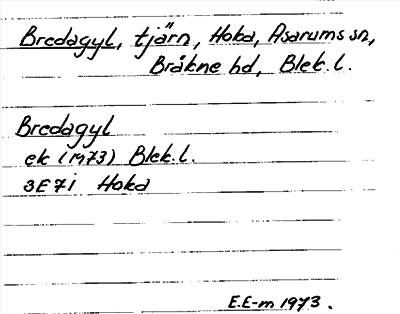 Bredagyl, tjärn, Hoka, Asarums sn,
Bräkne hd, Blek. l.
Bredagyl
ek (1973) Blek. l.
3E7i Hoka
E.E-m 1973.